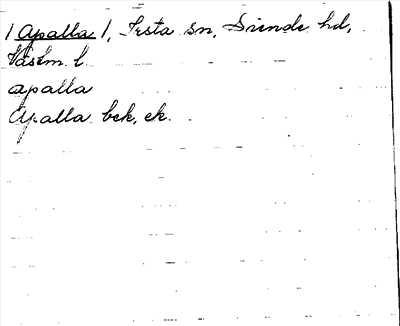 / Apalla /, Irsta sn, Siende hd,
Västm. l.
apalla
Apalla bek, ek.